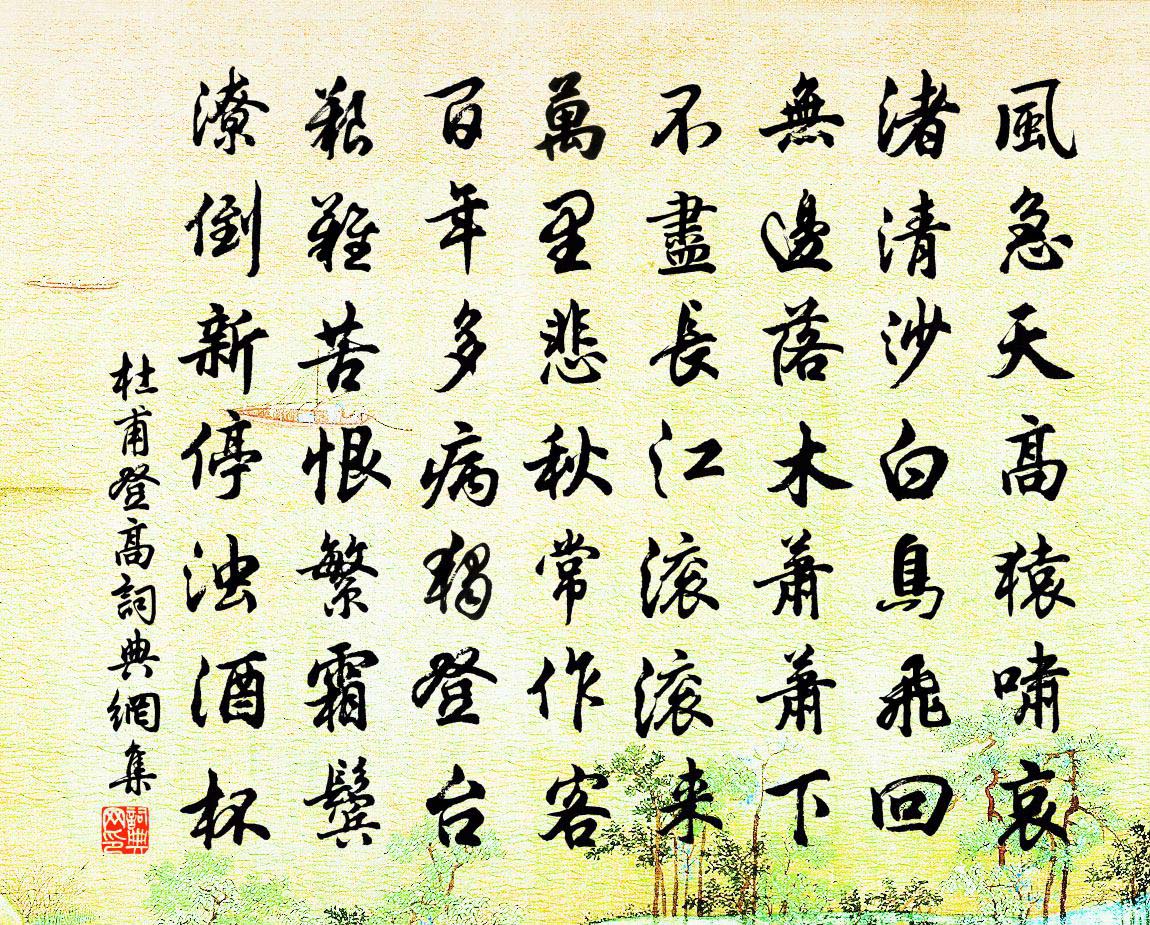 風急天高猿嘯哀
渚清沙白鳥飛回
無邊落木蕭蕭下
不盡長江滾滾来
萬里悲秋常作客
百年多病獨登台
艱難苦恨繁霜鬢
潦倒新停浊酒杯
杜甫登高詞典網集
詞典网印